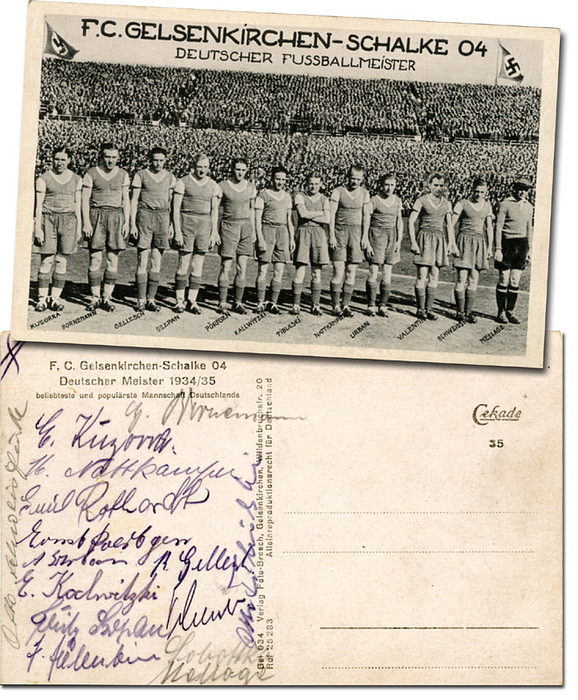 F.C. GELSENKIRCHEN-SCHALKE 04
DEUTSCHER FUSSBALLMEISTER
KUZORRA BORNEMANN GELLESCH SZEPAN PÖRTGEN KALLWITZKI TIBULSKI NATTKAMPER URBAN VALENTIN SCHWEISS MELLAGE
F. C. Gelsenkirchen-Schalke 04
Deutscher Meister 1934/35
beliebteste und populärste Mannschaft Deutschlands
E. Kuzorra.
H. Nattkämper
Emil Rothardt
Ernst Poertgen
A Urban R. Gellesch
E. Kalwitzki
Fritz Szepan
Mellage
Verlag Foto-Brosch, Gelsenkirchen, Wildenbruchstr. 20
Alleinreproduktionsrecht für Deutschland
Gel 934
Rdf 25 283
Cekade
35